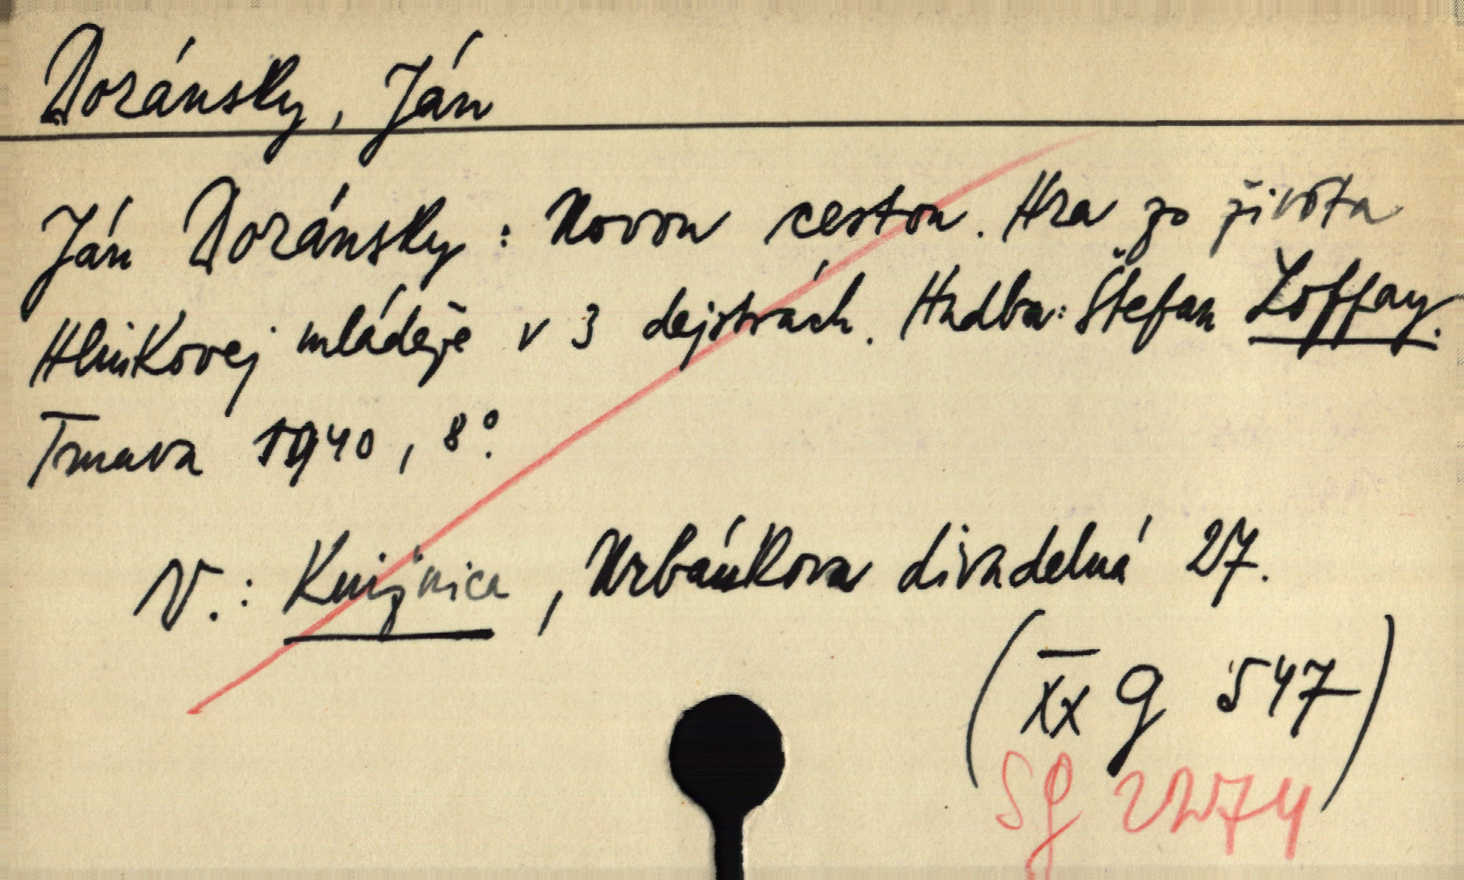 Doránsky, Ján
Ján Doránsky: Novou cestou. Hra zo života
Hlinkovej mládeže v 3 dejstvách. Hudba: Štefan Zoffay.
Trnava 1940, 8°.
V.: Knižnica, Urbánkova divadelná 27.
(XX g 547)
Sg 22574